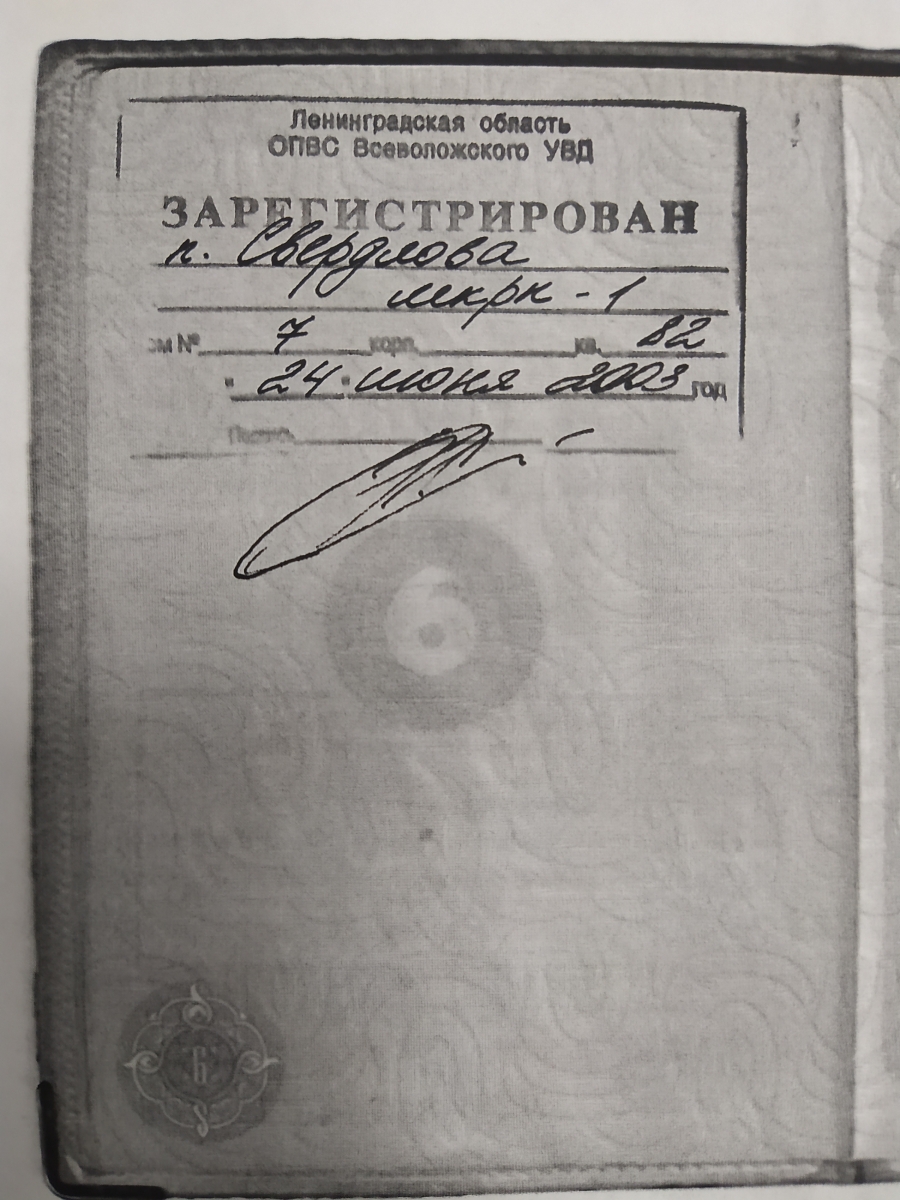 Ленинградская область
ОПВС Всеволожского УВД
ЗАРЕГИСТРИРОВАН
п. Свердлова
мкрн - 1
ом № 7 корп. кв. 82
" 24 " июня 2003 год
Подпись
6